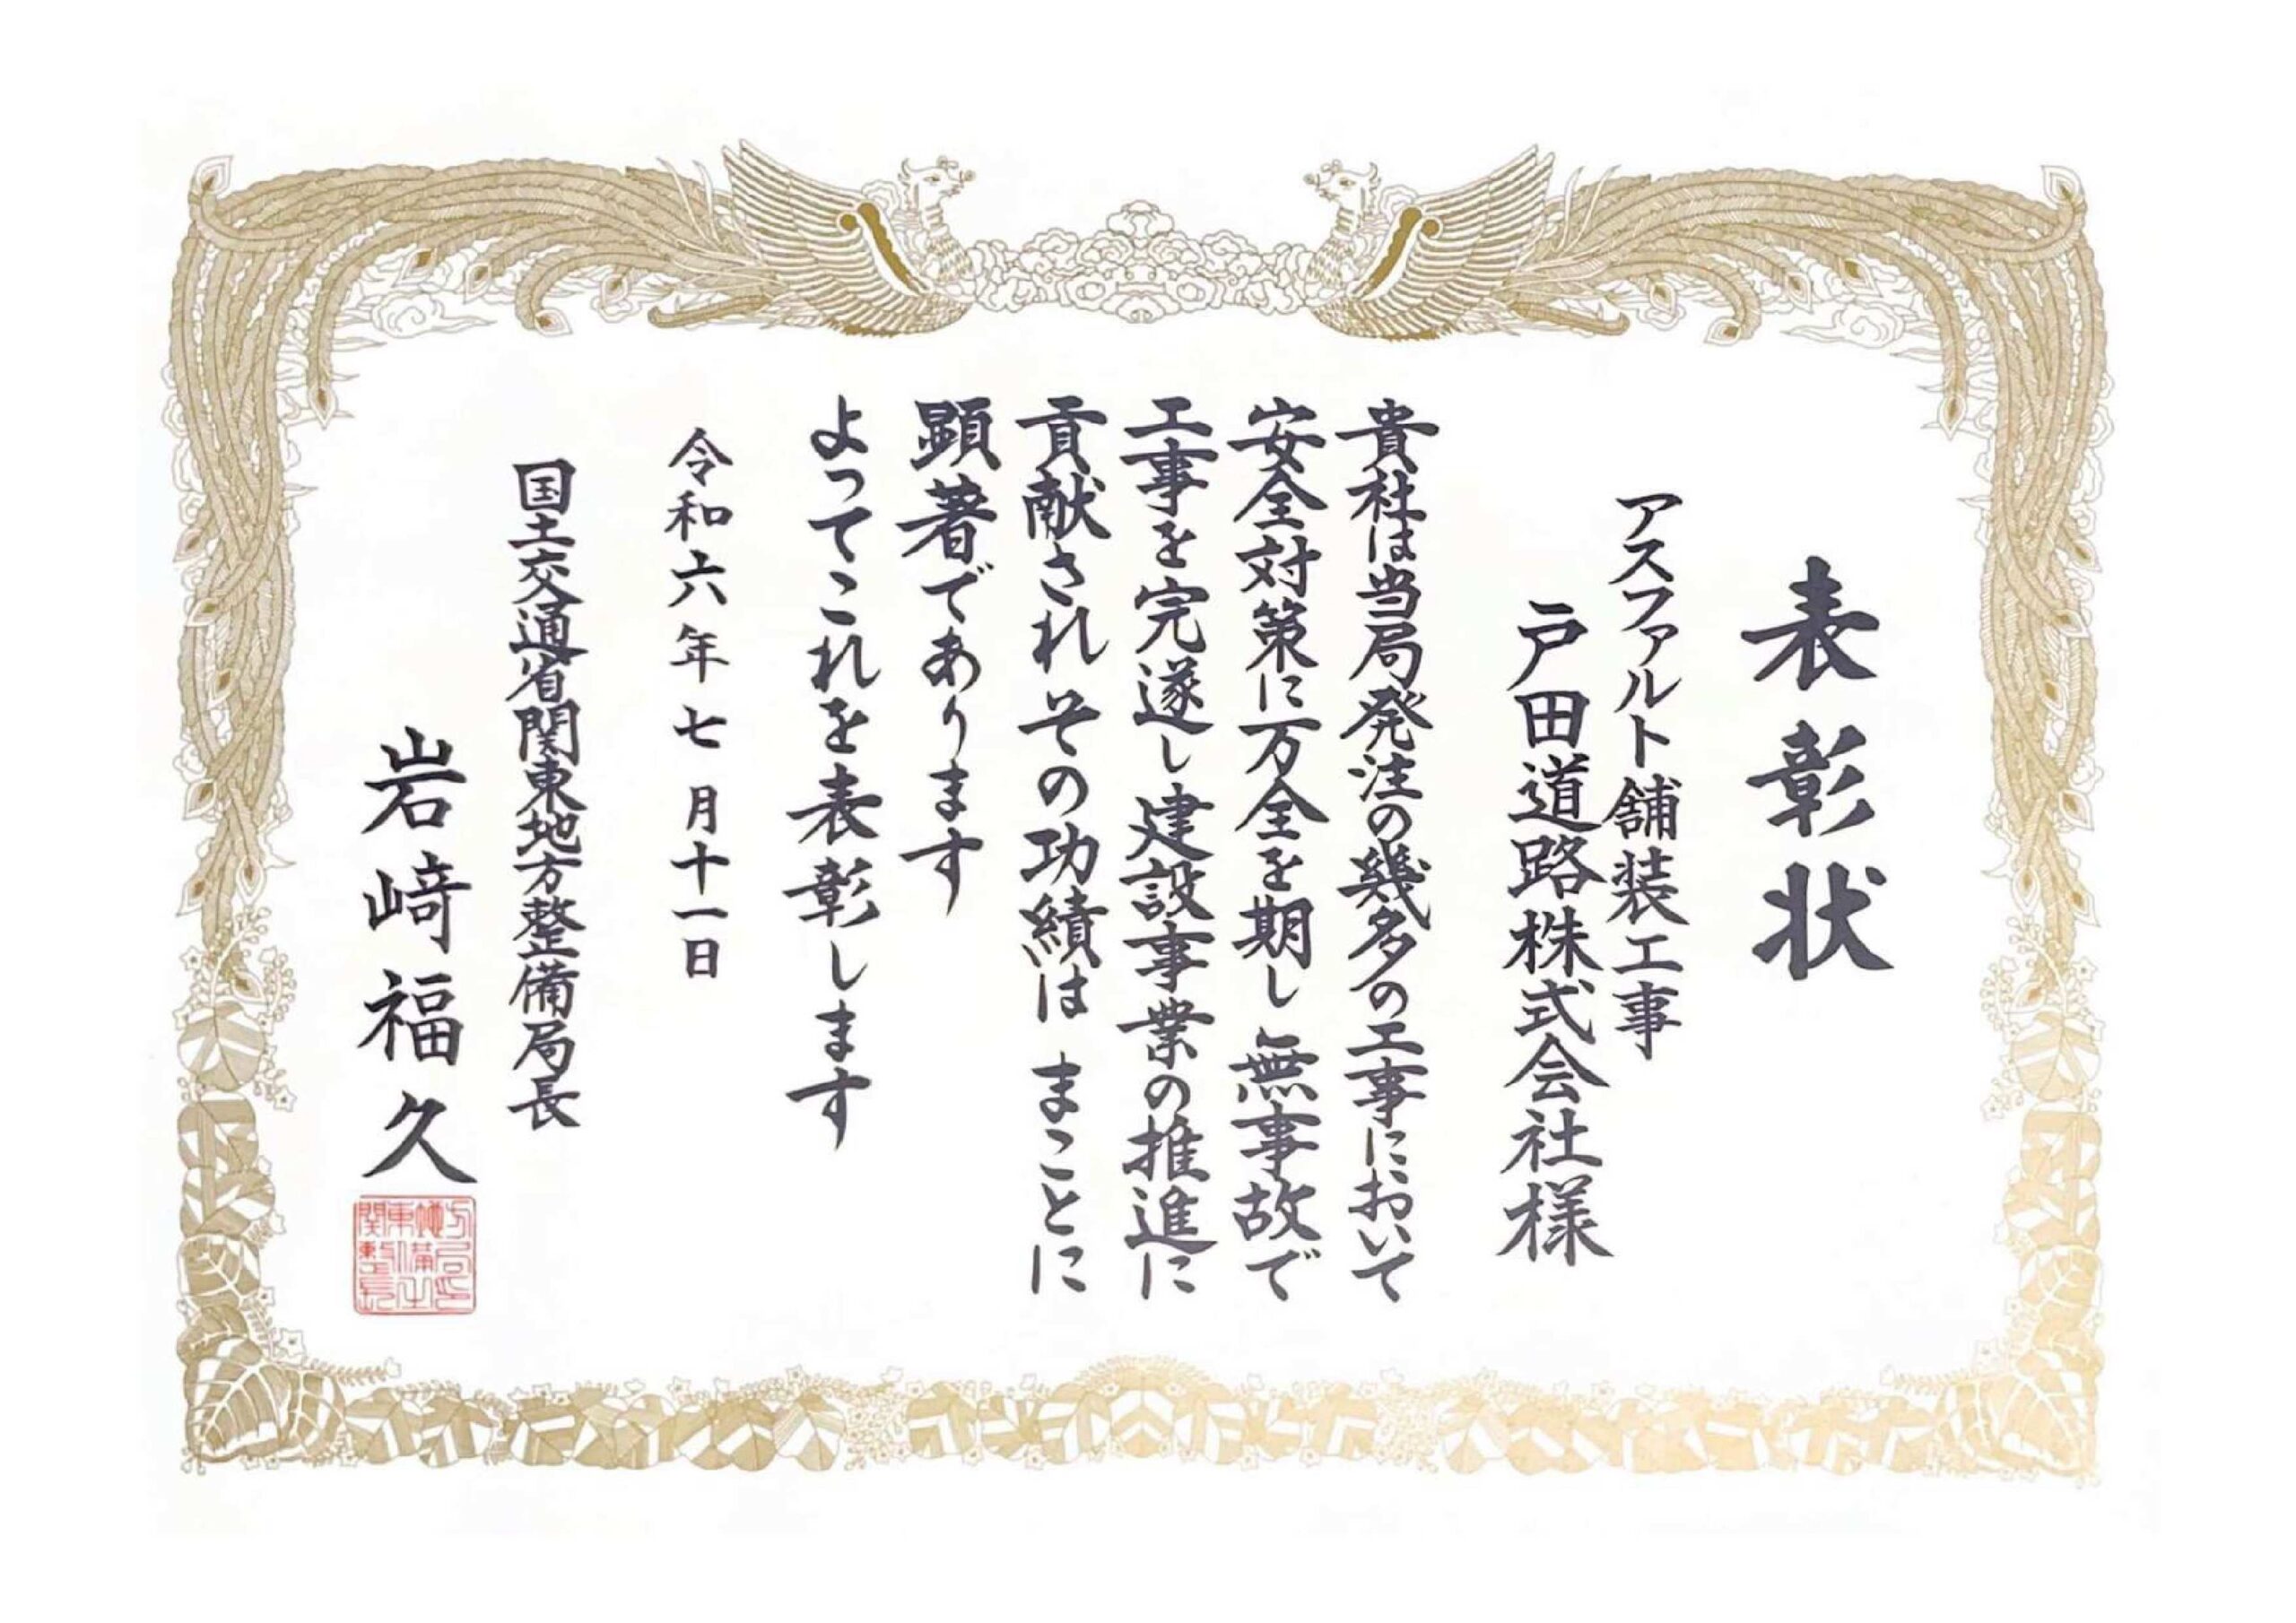 表彰状
アスファルト舗装工事
戸田道路株式会社様
貴社は当局発注の幾多の工事において
安全対策に万全を期し無事故で
工事を完遂し建設事業の推進に
貢献されその功績はまことに
顕著であります
よってこれを表彰します
令和六年七月十一日
国土交通省関東地方整備局長
岩﨑福久